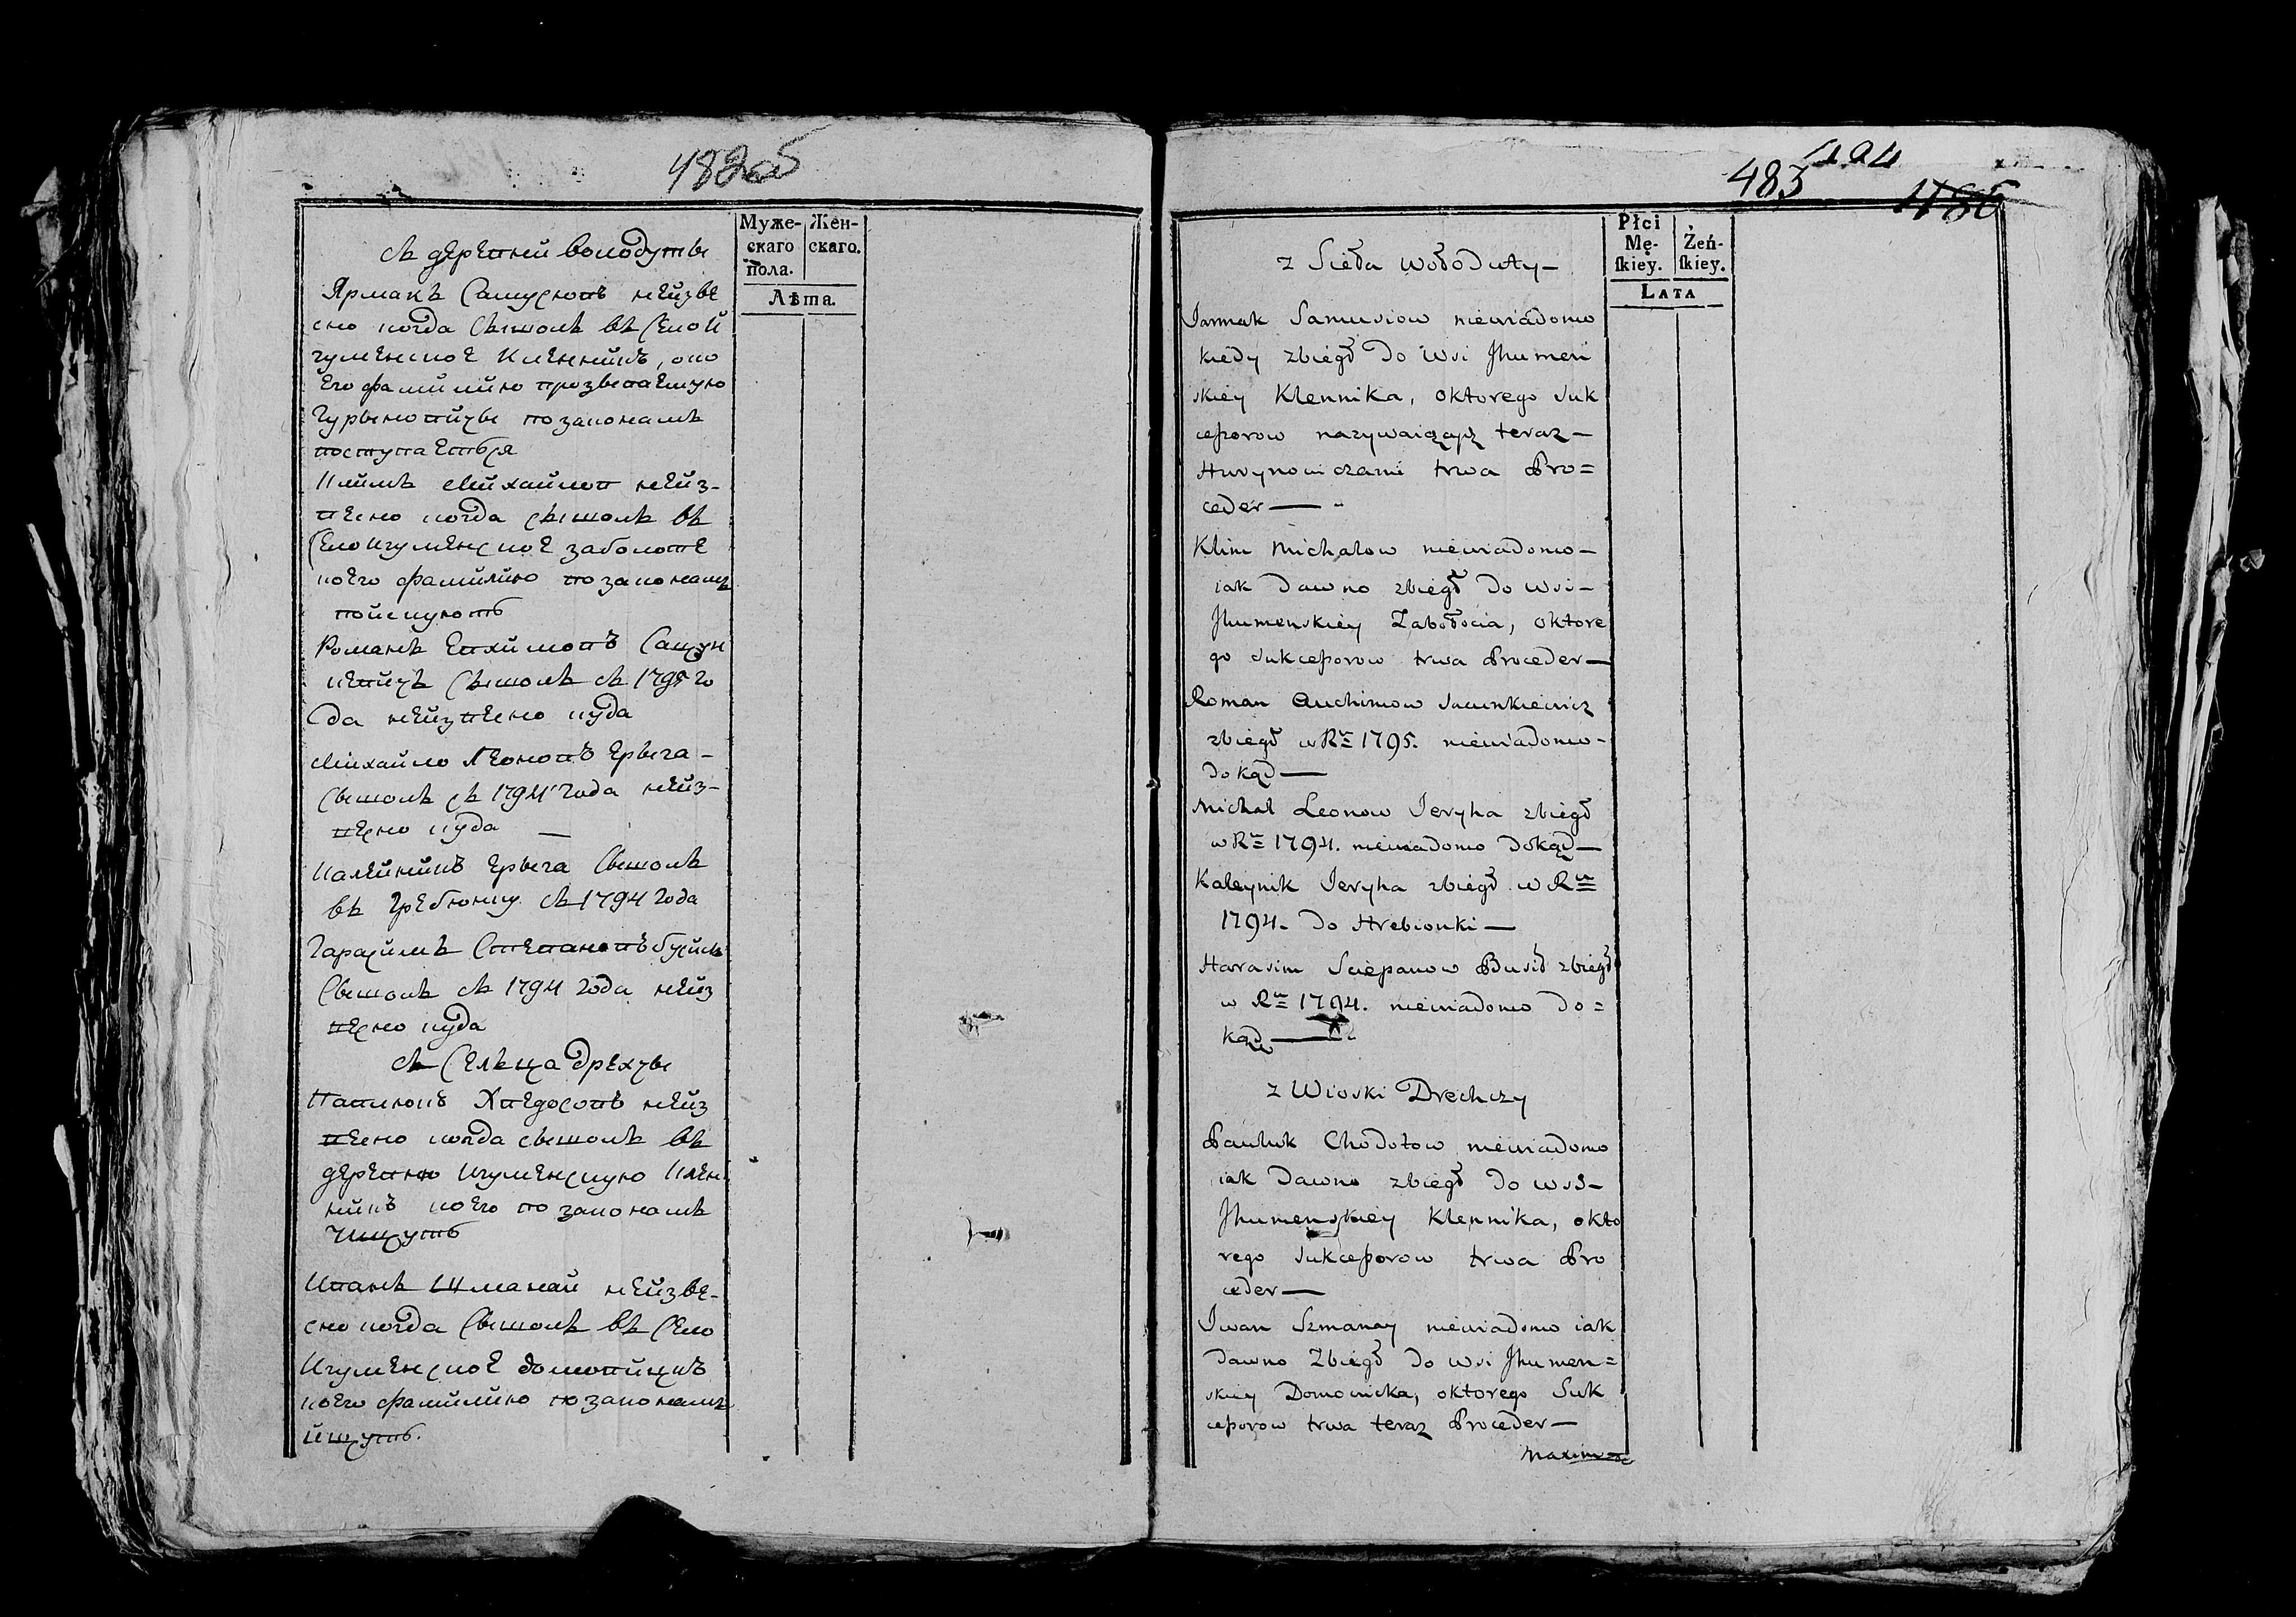 482об
Муже-
скаго
пола.
Жен-
скаго.
Лѣта.
съ деревни володуты
Ярмакъ Самусювъ неизве
сно когда съшолъ въ Село И
гуменское Кленникъ, око
его фамилию прозываемую
Гурыновичы по законамъ
поступаетъся
Климъ Михайлов неиз-
весно когда сышолъ въ
Село Игуменское заболоте
коего фамилию по законамъ
поискуютъ
Романъ Евхимовъ Сацун
кевичъ Сышолъ съ 1795 го
да неизвесно куда
Михайло Леоновъ Ерыга -
Сышолъ съ 1794 года неиз-
весно куда —
Калейникъ Ерыга Сышолъ
въ Гребюнку съ 1794 года
Гарасимъ Степановъ бусилъ
Сышолъ съ 1794 года неиз
весно куда
съ Сельца дрехчы
Павлюкъ неиз
весно когда сышолъ въ
деревню Игуменскую Клен
никъ коего по законамъ
ищутъ
Иванъ Шманай неизве-
сно когда Сышолъ въ Село
Игуменское домовицкъ
коего фамилию по законамъ
ищутъ.
483
486
Płci
Mę-
skiey.
Żeń-
skiey.
LATA
z Sieła Wołoduty —
Jarmak Samusiow niewiadomo
kiedy zbiegł do wsi Jhumeń
skiey Klennika, oktorego suk
cessorow nazywaiących teraz —
Hurynowiczami trwa Pro=
ceder —
Klim Michałow niewiadomo —
iak dawno zbiegł do wsi —
Jhumenskiey Zabołocia, oktore
go sukcessorow trwa Proceder —
Roman Auchimow Sacunkiewicz
zbiegł w Rᵘ 1795. niewiadomo -
dokąd —
Michał Leonow Jeryha zbiegł
w Rᵘ 1794. niewiadomo dokąd —
Kaleynik Jeryha zbiegł w Rᵘ
1794. do Hrebionki —
Harasim Sciepanow Busił zbiegł
w Rᵘ 1794. niewiadomo do=
kąd —
z Wioski Drechczy
Pauluk Chodotow niewiadomo
iak dawno zbiegł do wsi —
Jhumenskiey Klennika, okto
rego sukcessorow trwa Pro
ceder —
Jwan Szmanay niewiadomo iak
dawno zbiegł do wsi Jhumen=
skiey Domowicka, oktorego Suk
cessorow trwa teraz Proceder —
Maxim